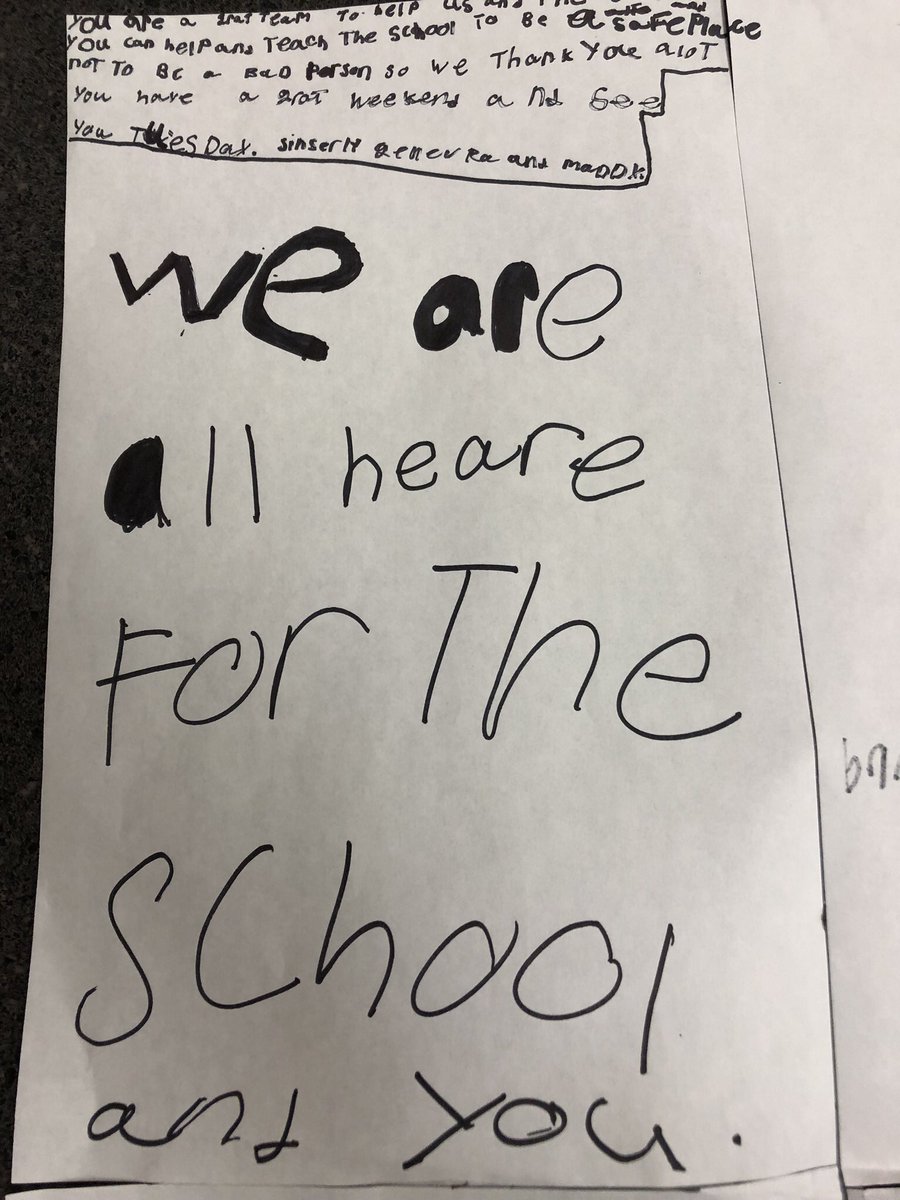 You are a grat Team To help us and The
You can help and Teach The School To Be a safe Place
not To Be a Bad Person so we Thank You alot
You have a grat weekend and See
You TuesDay. sinserly genevra and maDDx.
we are
all heare
For The
School
and You.